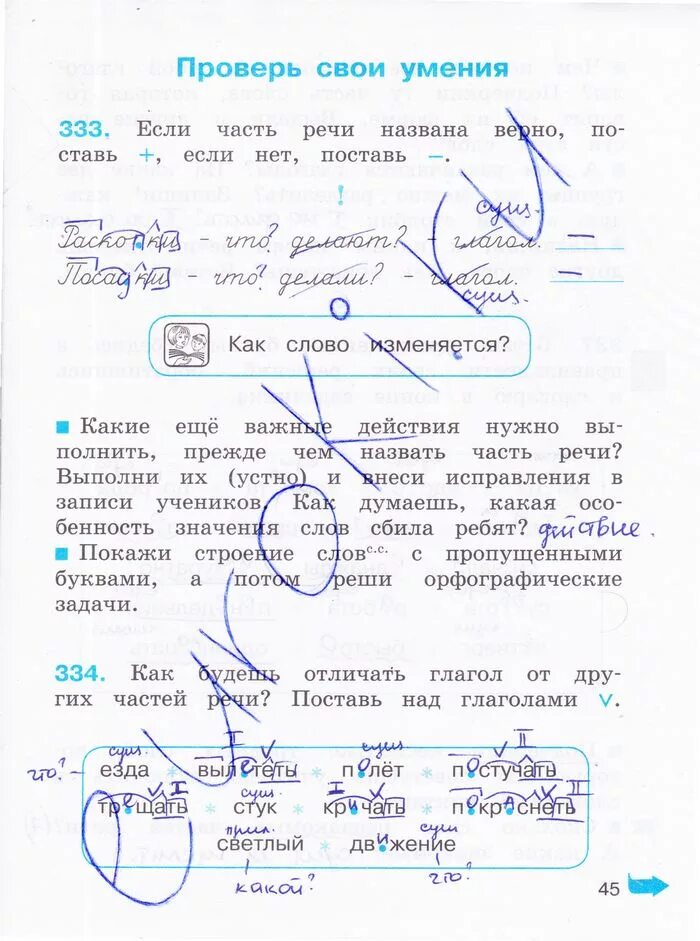 Проверь свои умения
333. Если часть речи названа верно, по-
ставь +, если нет, поставь –.
!
сущ.
Раскопки - что? делают? - глагол. –
Посадки - что? делали? - глагол.
сущ.
Как слово изменяется?
Какие ещё важные действия нужно вы-
полнить, прежде чем назвать часть речи?
Выполни их (устно) и внеси исправления в
записи учеников. Как думаешь, какая осо-
бенность значения слов сбила ребят? действие.
Покажи строение слов с.с. с пропущенными
буквами, а потом реши орфографические
задачи.
334. Как будешь отличать глагол от дру-
гих частей речи? Поставь над глаголами v.
сущ. II сущ. II
что? езда * вылететь * полёт * постучать
трещать I * стук сущ. * кричать I * покраснеть II
прил. сущ.
светлый * движение
какой? что?
45